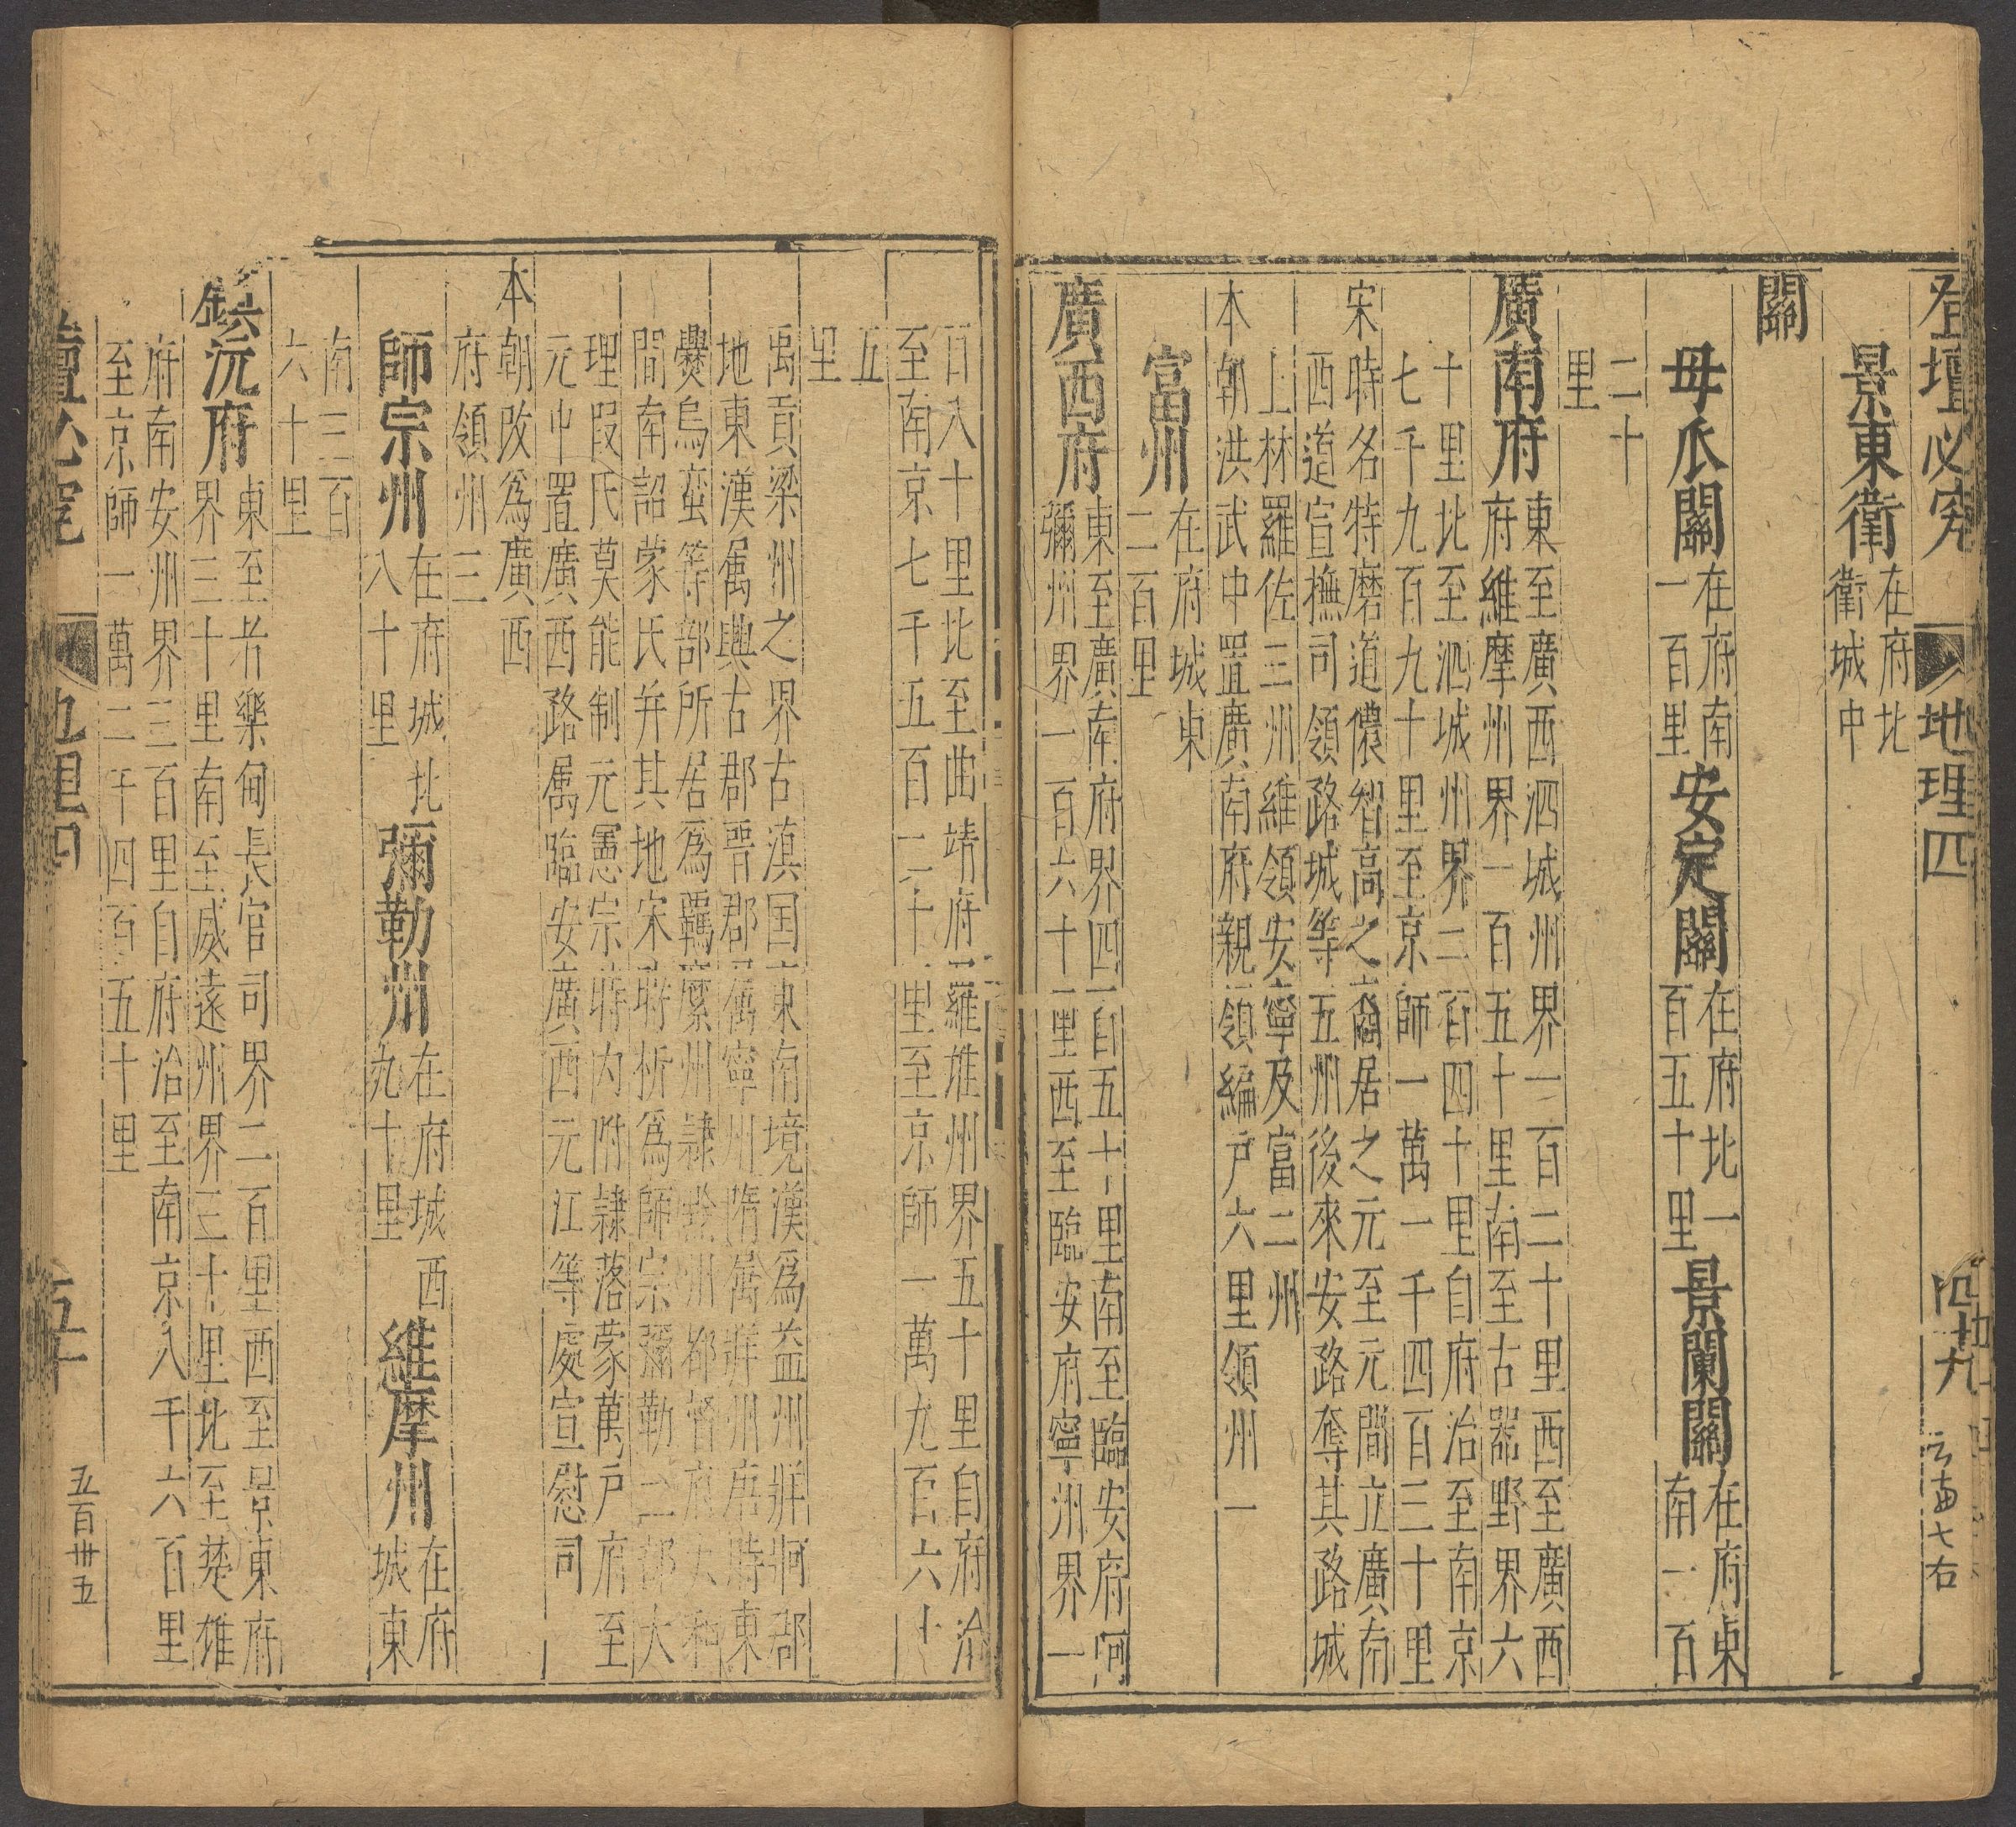 登壇必究 地理四 四十九 云南七右
景東衛在府北
衛城中
關
毋瓜關在府南
一百里安定關在府北一
百五十里景闌關在府東
南一百
二十
里
廣南府東至廣西泗城州界一百二十里西至廣西
府維摩州界一百五十里南至古器野界六
十里北至泗城州界二百四十里自府治至南京
七千九百九十里至京師一萬一千四百三十里
宋時名特磨道儂智高之裔居之元至元間立廣南
西道宣撫司領路城等五州後來安路奪其路城
上林羅佐三州維領安寧及富二州
本朝洪武中置廣南府親領編户六里領州一
富州在府城東
二百里
廣西府東至廣南府界四百五十里南至臨安府阿
彌州界一百六十里西至臨安府寧州界一
百八十里北至曲靖府羅雄州界五十里自府治
至南京七千五百二十里至京師一萬九百六十
五
里
禹貢梁州之界古滇国東南境漢爲益州牂牁郡
地東漢属興古郡晋郡属寧州隋属牂州唐時東
爨烏蛮等部所居爲羈縻州隸黔州都督府大和
間南詔蒙氏并其地宋時析爲師宗彌勒二部大
理叚氏莫能制元憲宗時内附隷落蒙萬户府至
元中置廣西路属臨安廣西元江等處宣慰司
本朝改爲廣西
府領州三
師宗州在府城北
八十里彌勒州在府城西
九十里維摩州在府
城東
南三百
六十里
鎮沅府東至者樂甸長官司界二百里西至景東府
界三十里南至威遠州界三十里北至楚雄
府南安州界三百里自府治至南京八千六百里
至京師一萬二千四百五十里
五十 五百卅五